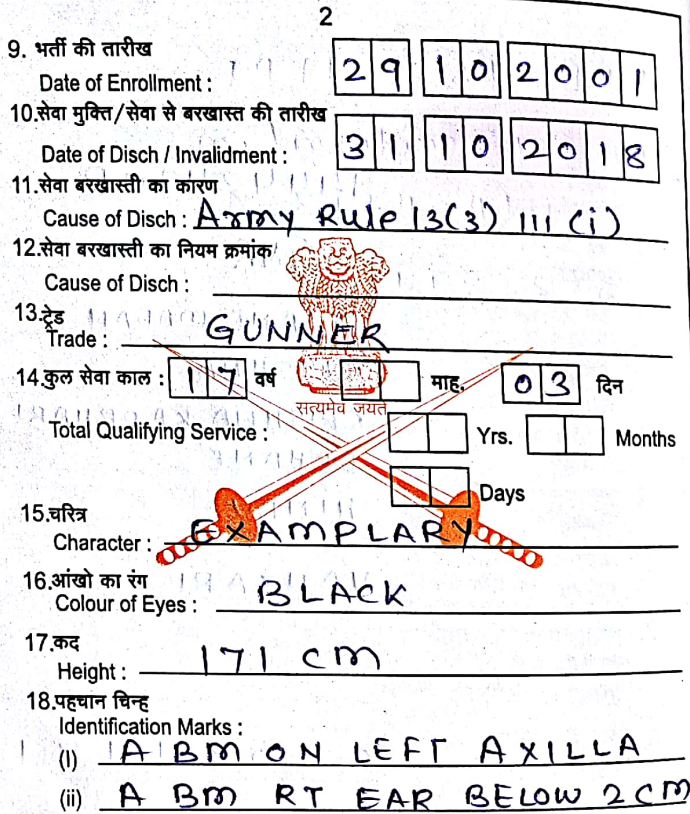 2
9. भर्ती की तारीख
Date of Enrollment : 29 10 2001
10.सेवा मुक्ति/सेवा से बरखास्त की तारीख
Date of Disch / Invalidment : 31 10 2018
11.सेवा बरखास्ती का कारण
Cause of Disch : Army Rule 13(3) III (i)
12.सेवा बरखास्ती का नियम क्रमांक
Cause of Disch :
13.ट्रेड
Trade : GUNNER
14.कुल सेवा काल : 17 वर्ष माह, 03 दिन
सत्यमेव जयते
Total Qualifying Service : Yrs. Months
Days
15.चरित्र
Character : EXAMPLARY
16.आंखो का रंग
Colour of Eyes : BLACK
17.कद
Height : 171 CM
18.पहचान चिन्ह
Identification Marks :
(I) A BM ON LEFT AXILLA
(ii) A BM RT EAR BELOW 2CM